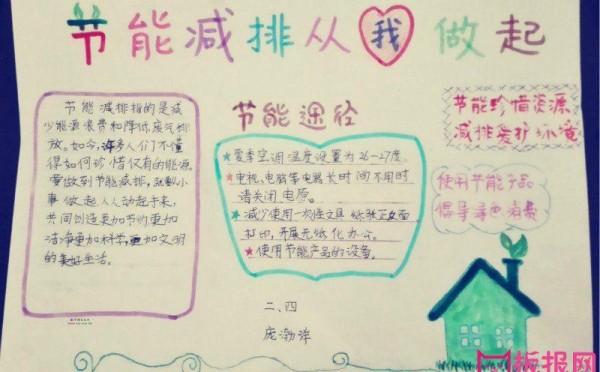 节能减排从我做起
节能减排指的是减
少能源浪费和降低废气排
放。如今,许多人们不懂
得如何珍惜仅有的能源,
要做到节能减排,就从小
事做起,人人动起手来,
共同创造更加节约更加
洁净更加科学,更加文明
的美好生活。
节能途径
★夏季空调温度设置为26-27度。
★电视、电脑等电器长时间不用时
请关闭电原。
★减少使用一次性文具纸张正反面
打印,开展无纸化办公。
★使用节能产品的设备。
二、四
庞渤洋
节能珍惜资源
减排爱护环境
使用节能产品
倡导绿色消费
板报网